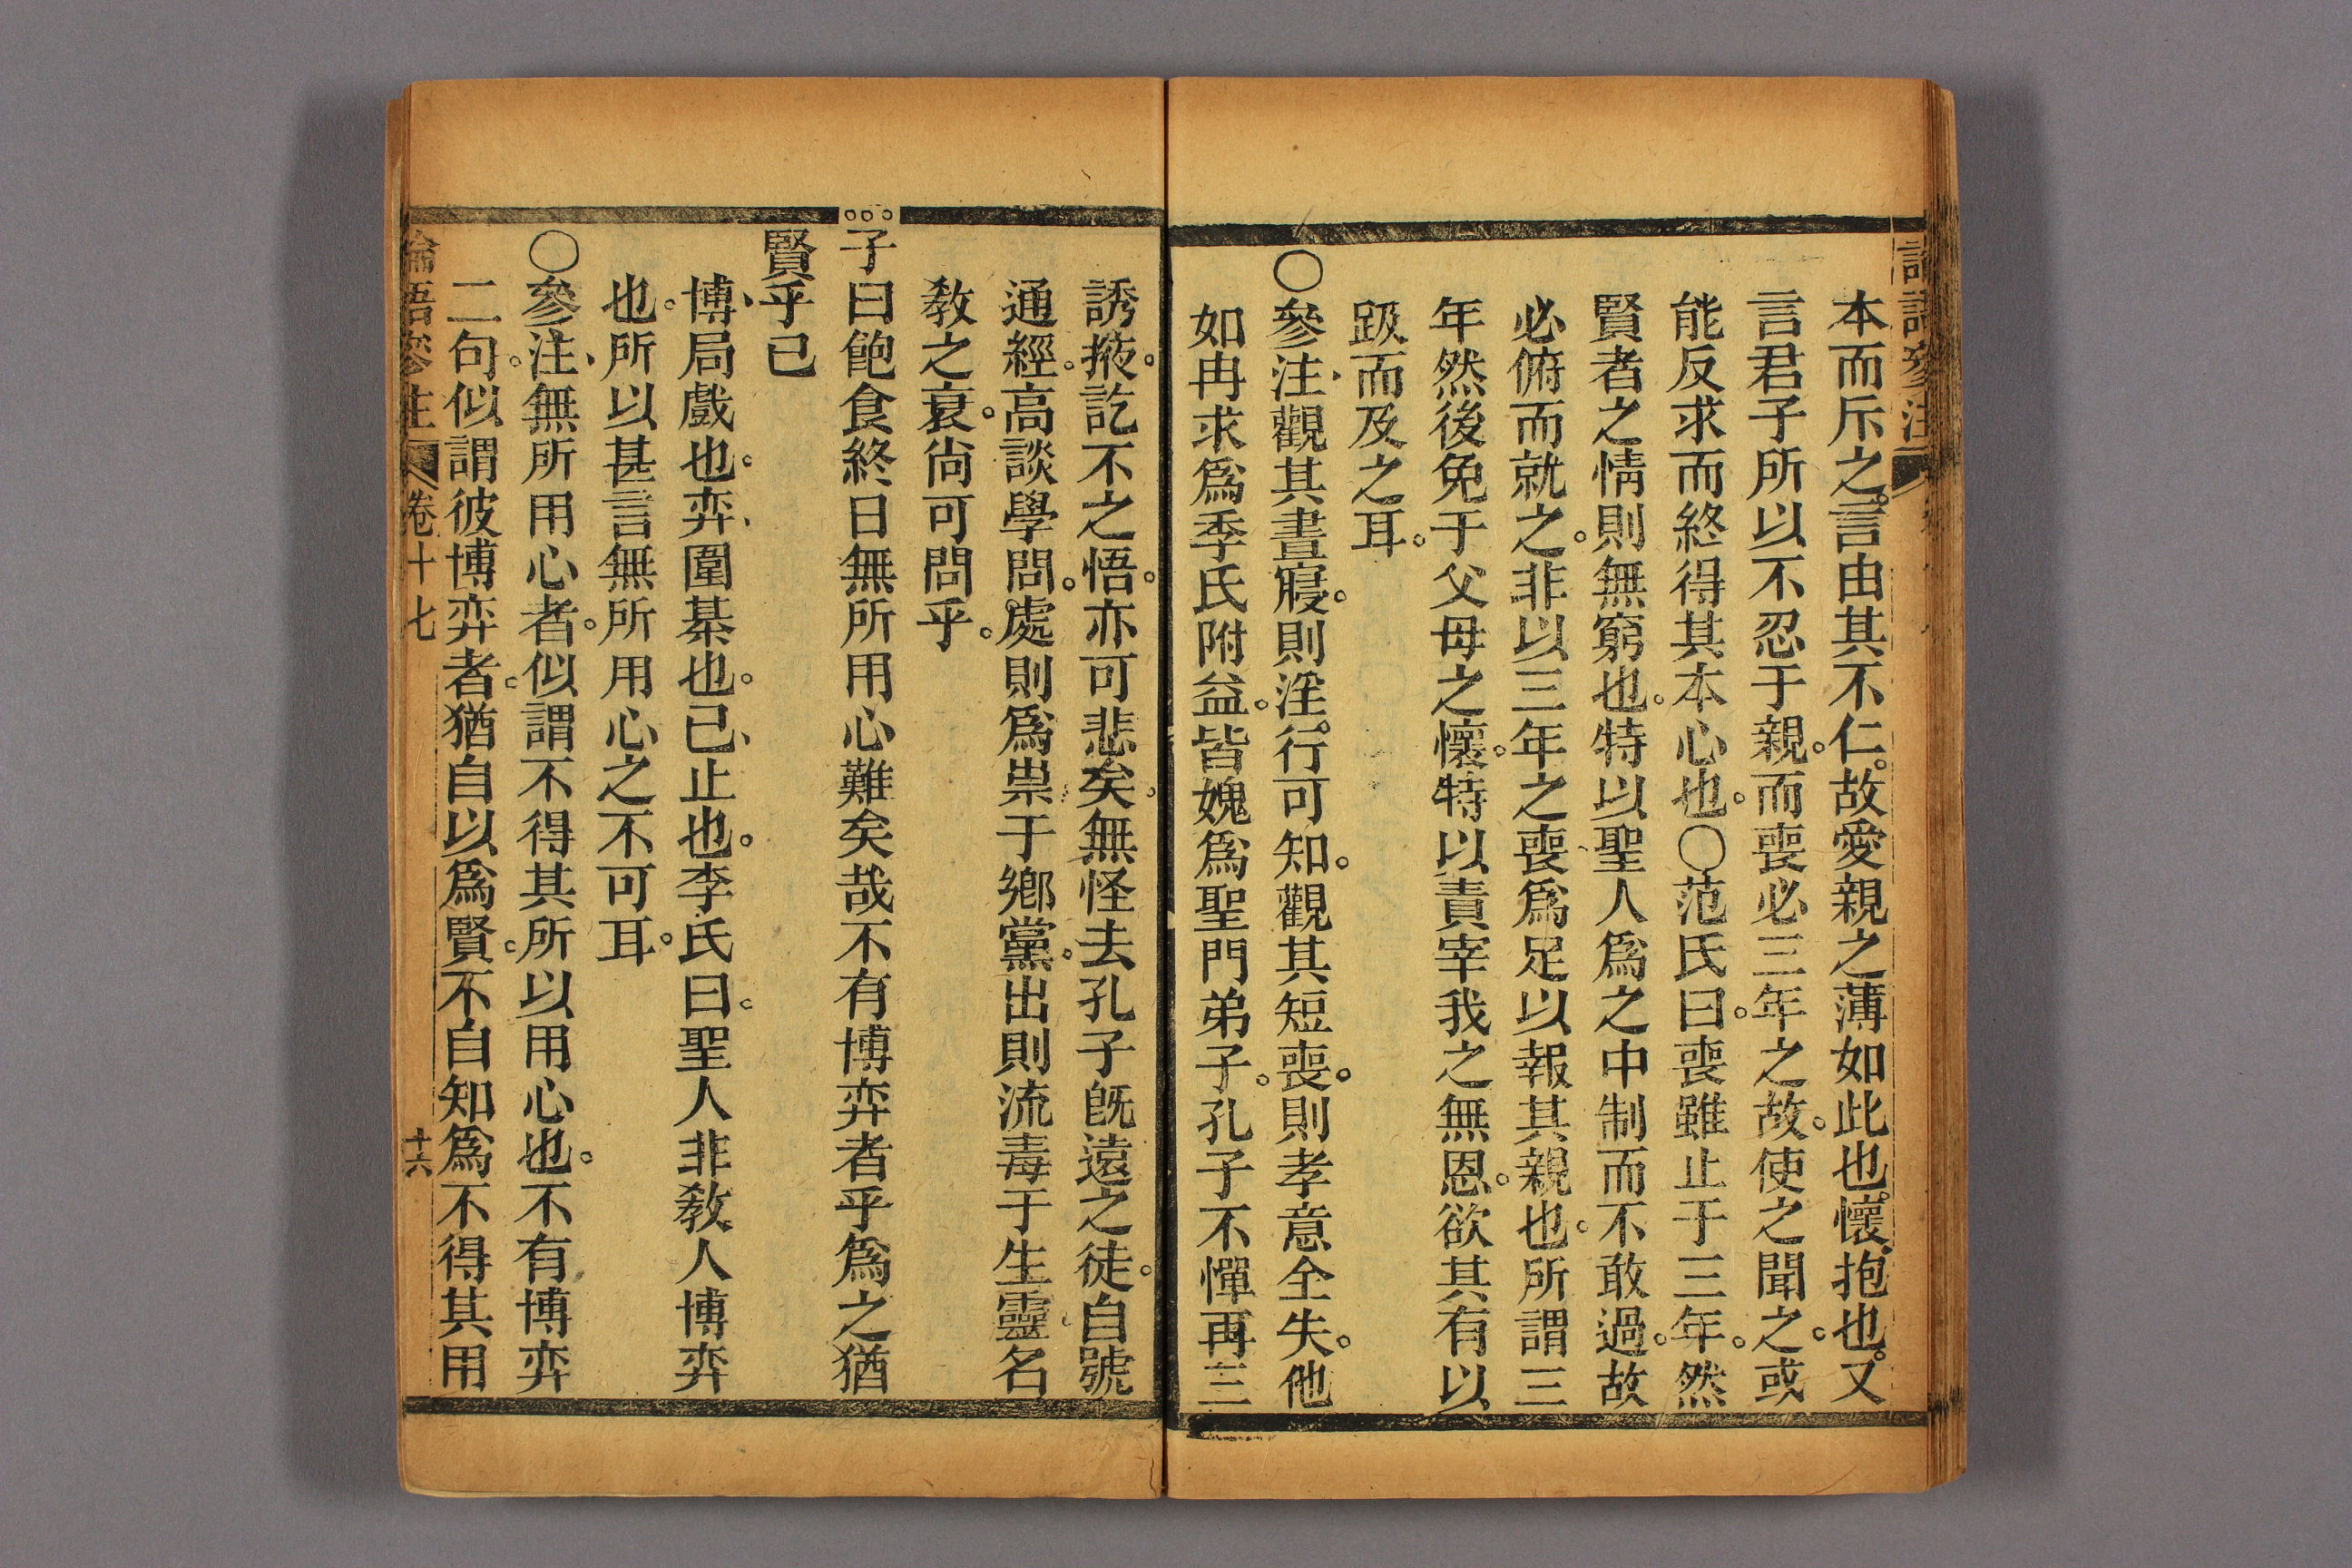 本而斥之。言由其不仁。故愛親之薄如此也。懷、抱也。又
言君子所以不忍于親。而喪必三年之故。使之聞之。或
能反求而終得其本心也。〇范氏曰。喪雖止于三年。然
賢者之情則無窮也。特以聖人爲之中制而不敢過。故
必俯而就之。非以三年之喪、爲足以報其親也。所謂三
年然後免于父母之懷。特以責宰我之無恩。欲其有以
跋而及之耳。
〇參注、觀其晝寢。則淫行可知。觀其短喪。則孝意全失。他
如冉求爲季氏附益。皆媿爲聖門弟子。孔子不憚再三
誘掖。訖不之悟。亦可悲矣。無怪去孔子旣遠之徒。自號
通經。高談學問。處則爲祟于鄉黨。出則流毒于生靈。名
敎之衰。尚可問乎。
子曰飽食終日無所用心難矣哉不有博弈者乎爲之猶
賢乎已
博、局戲也。弈、圍棊也。已、止也。李氏曰。聖人非敎人博弈
也。所以甚言無所用心之不可耳。
〇參注、無所用心者。似謂不得其所以用心也。不有博弈
二句。似謂彼博弈者。猶自以爲賢。不自知爲不得其用
論語參注 卷十七 十六